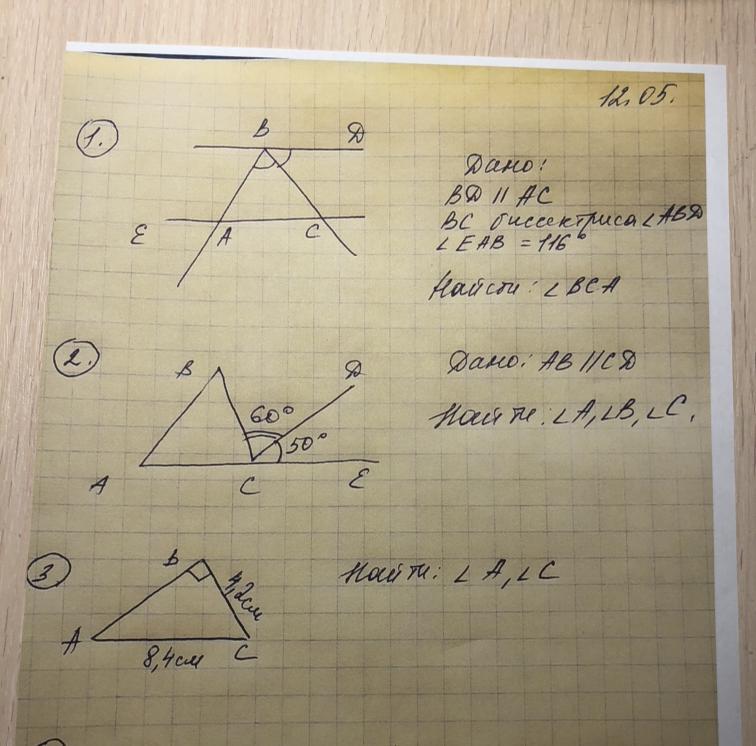 12.05.
1.
B D
E A C
Дано:
BD || AC
BC биссектриса ∠ABD
∠EAB = 116°
Найти: ∠BCA
2.
B D
60°
50°
A C E
Дано: AB || CD
Найти: ∠A, ∠B, ∠C.
3
B
4,2см
A C
8,4см
Найти: ∠A, ∠C